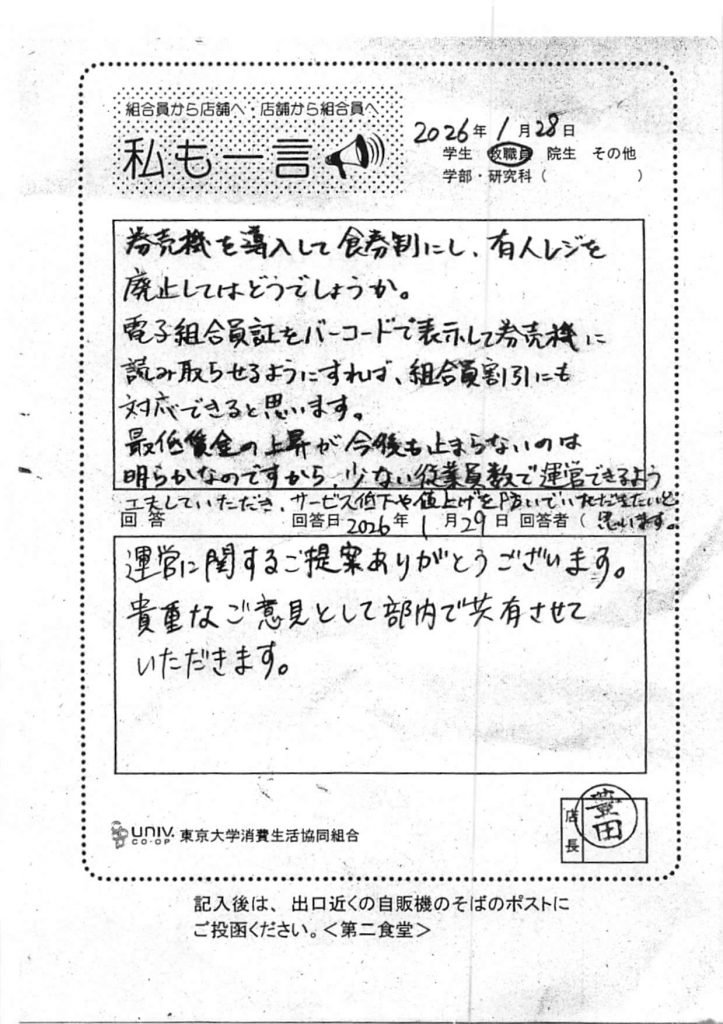 組合員から店舗へ・店舗から組合員へ
私も一言
2026年 1月28日
学生 教職員 院生 その他
学部・研究科（ ）
券売機を導入して食券制にし、有人レジを
廃止してはどうでしょうか。
電子組合員証をバーコードで表示して券売機に
読み取らせるようにすれば、組合員割引にも
対応できると思います。
最低賃金の上昇が今後も止まらないのは
明らかなのですから、少ない従業員数で運営できるよう
工夫していただき、サービス低下や値上げを防いでいただきたいと
思います。
回答 回答日 2026年 1月29日 回答者（
運営に関するご提案ありがとうございます。
貴重なご意見として部内で共有させて
いただきます。
UNIV. CO-OP 東京大学消費生活協同組合
店長 豊田
記入後は、出口近くの自販機のそばのポストに
ご投函ください。＜第二食堂＞